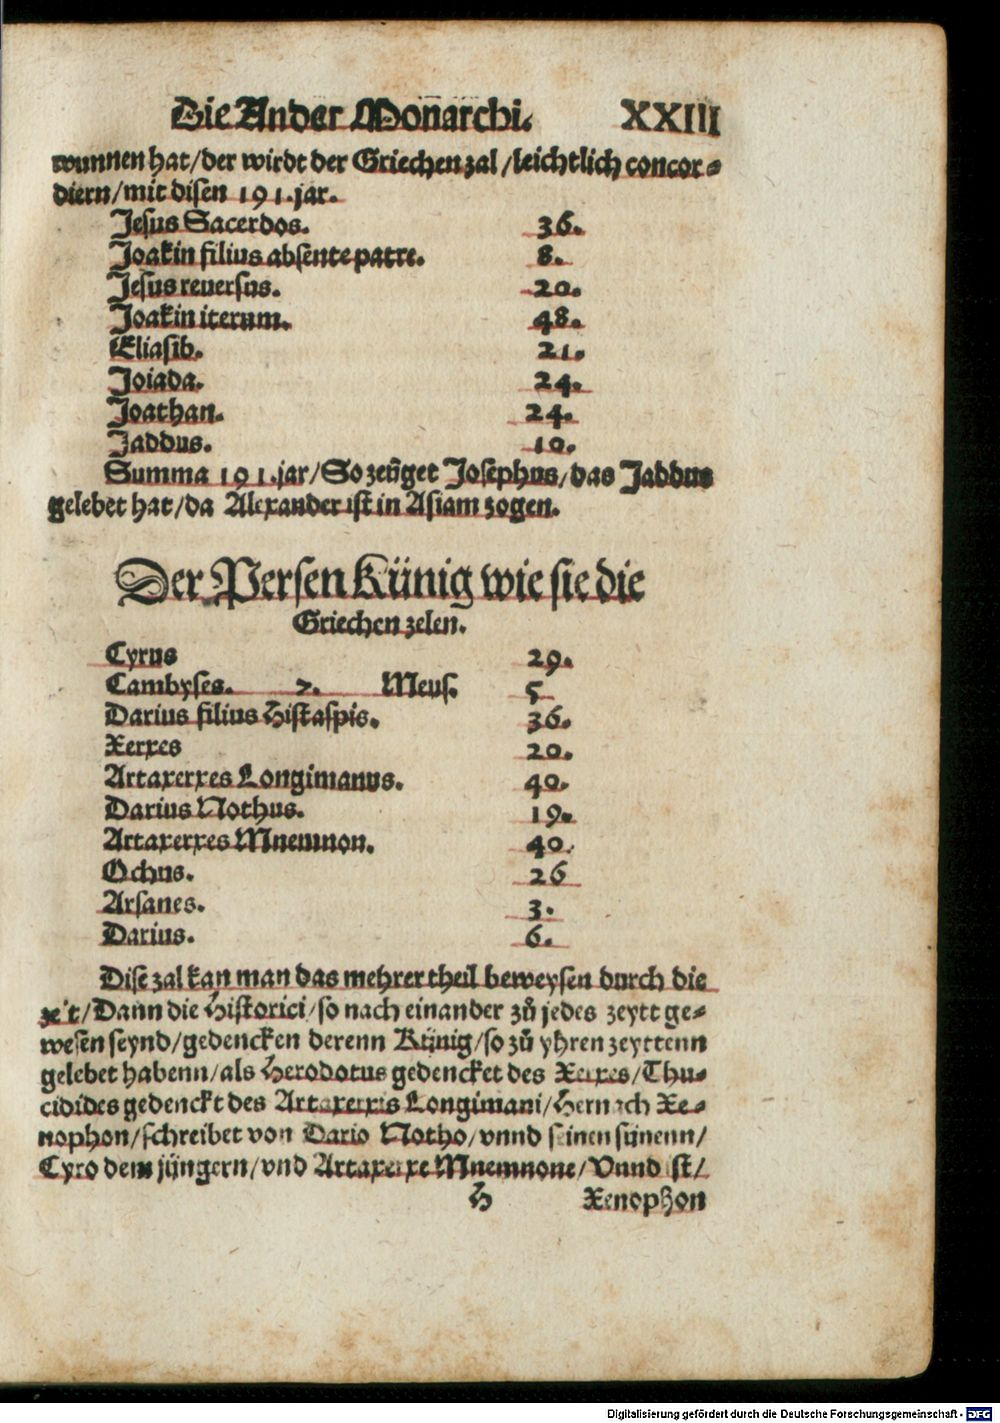 Die Ander Monarchi. XXIII
wunnen hat/der wirdt der Griechen zal/leichtlich concor-
diern/mit disen 191.jar.
Jesus Sacerdos. 36.
Joakin filius absente patre. 8.
Jesus reuersus. 20.
Joakin iterum. 48.
Eliasib. 21.
Joiada. 24.
Joathan. 24.
Jaddus. 10.
Summa 191.jar/So zeüget Josephus/das Jaddus
gelebet hat/da Alexander ist in Asiam zogen.
Der Persen Künig wie sie die
Griechen zelen.
Cyrus 29.
Cambyses. 7. Meus. 5
Darius filius Histaspis. 36.
Xerxes 20.
Artaxerxes Longimanus. 40.
Darius Nothus. 19.
Artaxerxes Mnemnon. 40.
Ochus. 26
Arsanes. 3.
Darius. 6.
Dise zal kan man das mehrer theil beweysen durch die
zeit/Dann die Historici/so nach einander zů jedes zeytt ge-
wesen seynd/gedencken derenn Künig/so zů yhren zeyttenn
gelebet habenn/als Herodotus gedencket des Xerxes/Thu-
cidides gedenckt des Artaxerxis Longimani/Hernach Xe-
nophon/schreibet von Dario Notho/vnnd seinen sünenn/
Cyro dem jüngern/vnd Artaxerxe Mnemnone/Vnnd ist/
H Xenophon
Digitalisierung gefördert durch die Deutsche Forschungsgemeinschaft - DFG